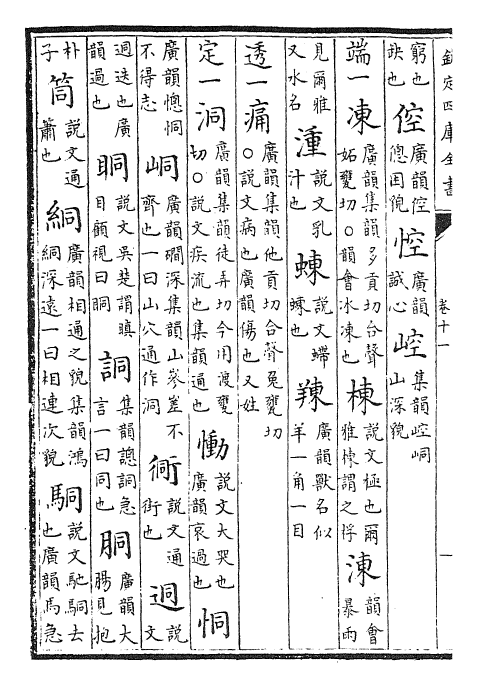 欽定四庫全書 卷十一
窮也缺也 倥 廣韻倥傯困貌 悾 廣韻誠心 崆 集韻崆峒山深貌
端一 凍 廣韻集韻多貢切合聲妬甕切○韻會冰凍也 棟 說文極也爾雅棟謂之桴 涷 韻會暴雨
見爾雅又水名 湩 說文乳汁也 蝀 說文螮蝀也 䍶 廣韻獸名似羊一角一目
透一 痛 廣韻集韻他貢切合聲兔甕切○說文病也廣韻傷也又姓
定一 洞 廣韻集韻徒弄切今用渡甕切○說文疾流也集韻通也 慟 說文大哭也廣韻哀過也 恫
廣韻憁恫不得志 峒 廣韻磵深集韻山參差不齊也一曰山穴通作洞 衕 說文通街也 迵 說文
迵迭也廣韻過也 眮 說文吳楚謂瞋目顧視曰眮 詷 集韻譥詷急言一曰同也 胴 廣韻大腸見抱
朴子 筒 說文通簫也 絧 廣韻相通之貌集韻鴻絧深遠一曰相連次貌 駧 說文馳駧去也廣韻馬急